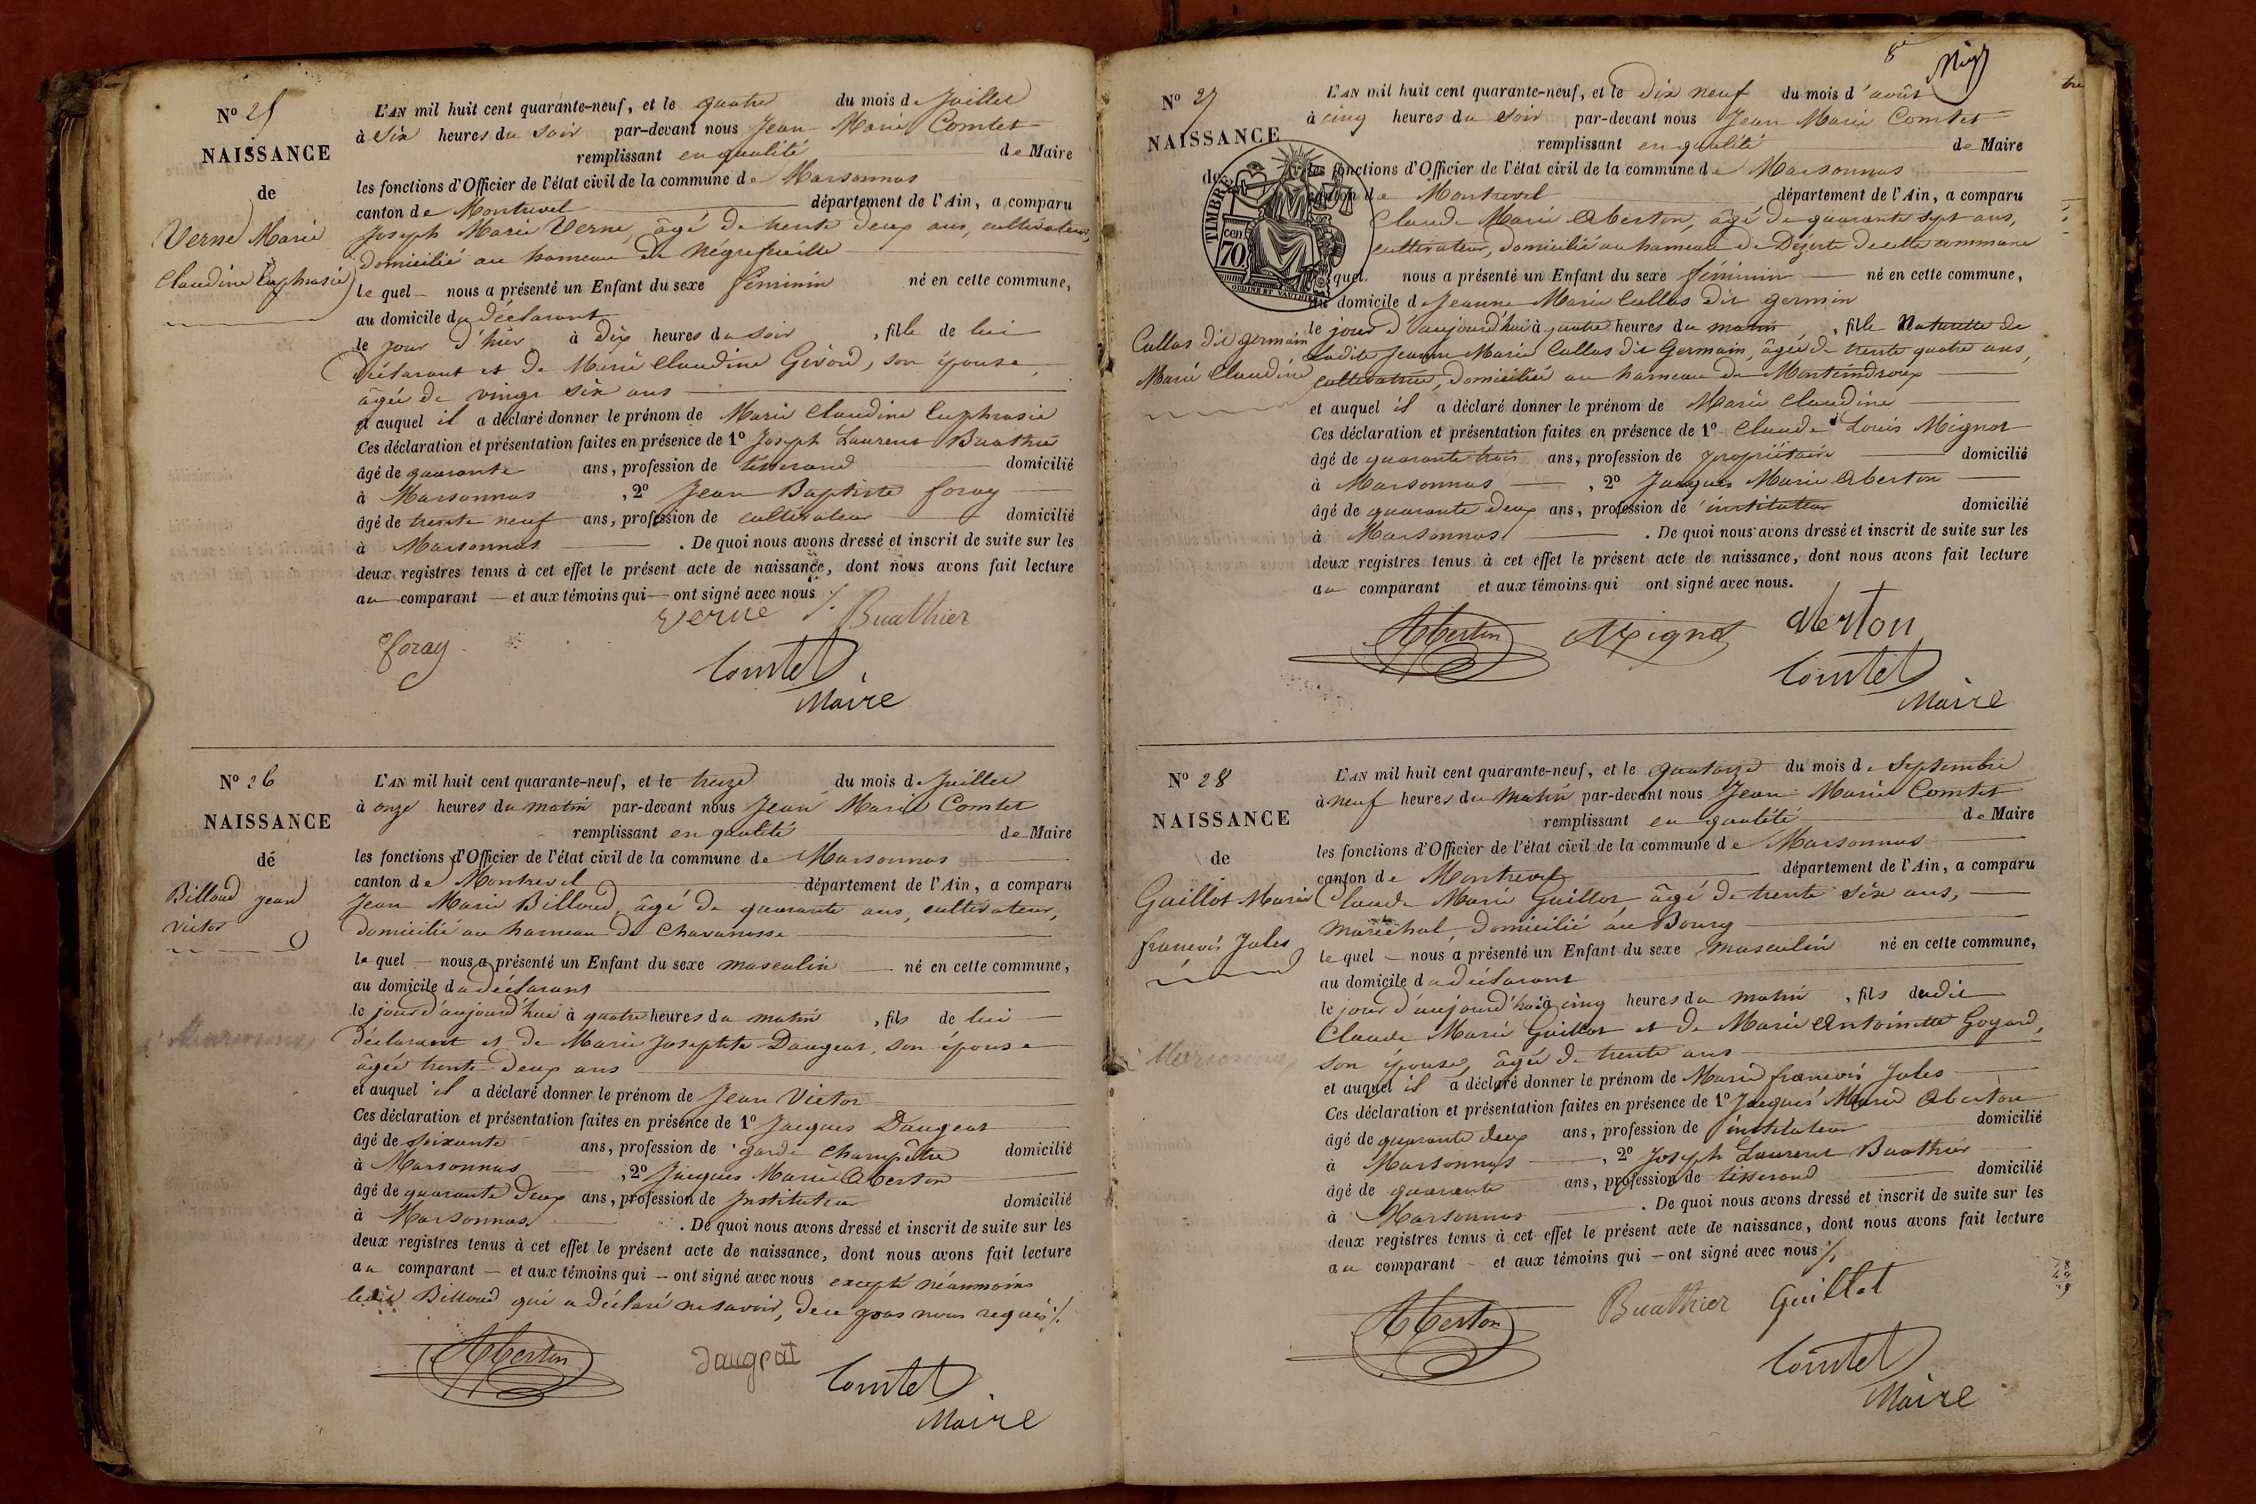 N° 25
NAISSANCE
de
Verne Marie
Claudine Euphrasie
L'AN mil huit cent quarante-neuf, et le quatre du mois de Juillet
à Six heures du soir par-devant nous Jean Marie Comtet
remplissant en qualité de Maire
les fonctions d'Officier de l'état civil de la commune de Marsonnas
canton de Montrevel département de l'Ain, a comparu
Joseph Marie Verne, âgé de trente deux ans, cultivateur,
domicilié au hameau de Négrefeuille
le quel nous a présenté un Enfant du sexe féminin né en cette commune,
au domicile du déclarant
le jour d'hier à Dix heures du soir, fille de lui
Déclarant et de Marie Claudine Girod, son épouse,
âgée de vingt six ans
et auquel il a déclaré donner le prénom de Marie Claudine Euphrasie
Ces déclaration et présentation faites en présence de 1° Joseph Laurent Buathier
âgé de quarante ans, profession de tisserand domicilié
à Marsonnas, 2° Jean Baptiste foray
âgé de trente neuf ans, profession de cultivateur domicilié
à Marsonnas. De quoi nous avons dressé et inscrit de suite sur les
deux registres tenus à cet effet le présent acte de naissance, dont nous avons fait lecture
au comparant et aux témoins qui ont signé avec nous ./.
Verne Buathier
foray
Comtet
Maire
N° 26
NAISSANCE
de
Billoud jean
Victor
Marsonnas
L'AN mil huit cent quarante-neuf, et le treize du mois de Juillet
à onze heures du matin par-devant nous Jean Marie Comtet
remplissant en qualité de Maire
les fonctions d'Officier de l'état civil de la commune de Marsonnas
canton de Montrevel département de l'Ain, a comparu
Jean Marie Billoud âgé de quarante ans, cultivateur,
domicilié au hameau de Chavanosse
le quel nous a présenté un Enfant du sexe masculin né en cette commune,
au domicile du déclarant
le jour d'aujourd'hui à quatre heures du matin, fils de lui
Déclarant et de Marie Josephte Daugeat, son épouse
âgée trente deux ans
et auquel il a déclaré donner le prénom de Jean Victor
Ces déclaration et présentation faites en présence de 1° Jacques Daugeat
âgé de soixante ans, profession de garde champêtre domicilié
à Marsonnas, 2° Jacques Marie Aberton
âgé de quarante deux ans, profession de Instituteur domicilié
à Marsonnas. De quoi nous avons dressé et inscrit de suite sur les
deux registres tenus à cet effet le présent acte de naissance, dont nous avons fait lecture
au comparant et aux témoins qui ont signé avec nous excepté néanmoins
ledit Billoud qui a déclaré ne savoir, de ce par nous requis ./.
Aberton Daugeat Comtet
Maire
8e
N° 27
NAISSANCE
de
TIMBRE
cen
70
OUDINE ET VAUTHIER
Cullas dit germain
Marie Claudine
L'AN mil huit cent quarante-neuf, et le Dix neuf du mois d'août
à cinq heures du soir par-devant nous Jean Marie Comtet
remplissant en qualité de Maire
les fonctions d'Officier de l'état civil de la commune de Marsonnas
canton de Montrevel département de l'Ain, a comparu
Claude Marie Aberton, âgé de quarante sept ans,
cultivateur, domicilié au hameau de Dezerte de cette commune
le quel nous a présenté un Enfant du sexe féminin né en cette commune,
au domicile de Jeanne Marie Cullas dit germin
le jour d'aujourd'hui à quatre heures du matin, fille Naturelle de
Ladite Jeanne Marie Cullas dit Germain, âgée de trente quatre ans,
cultivatrice, domiciliée au hameau de Montcindroux
et auquel il a déclaré donner le prénom de Marie Claudine
Ces déclaration et présentation faites en présence de 1° Claude Louis Mignot
âgé de quarante trois ans, profession de propriétaire domicilié
à Marsonnas, 2° Jacques Marie Aberton
âgé de quarante deux ans, profession de instituteur domicilié
à Marsonnas. De quoi nous avons dressé et inscrit de suite sur les
deux registres tenus à cet effet le présent acte de naissance, dont nous avons fait lecture
au comparant et aux témoins qui ont signé avec nous.
Aberton Mignot Aberton
Comtet
Maire
N° 28
NAISSANCE
de
Guillot Marie
françois Jules
Marsonnas
L'AN mil huit cent quarante-neuf, et le quatorze du mois de Septembre
à neuf heures du matin par-devant nous Jean Marie Comtet
remplissant en qualité de Maire
les fonctions d'Officier de l'état civil de la commune de Marsonnas
canton de Montrevel département de l'Ain, a comparu
Claude Marie Guillot âgé de trente six ans,
maréchal, domicilié au Bourg
le quel nous a présenté un Enfant du sexe masculin né en cette commune,
au domicile du déclarant
le jour d'aujourd'hui à cinq heures du matin, fils dudit
Claude Marie Guillot et de Marie Antoinette Goyard,
son épouse, âgée de trente ans
et auquel il a déclaré donner le prénom de Marie françois Jules
Ces déclaration et présentation faites en présence de 1° Jacques Marie Aberton
âgé de quarante deux ans, profession de instituteur domicilié
à Marsonnas, 2° Joseph Laurent Buathier
âgé de quarante ans, profession de tisserand domicilié
à Marsonnas. De quoi nous avons dressé et inscrit de suite sur les
deux registres tenus à cet effet le présent acte de naissance, dont nous avons fait lecture
au comparant et aux témoins qui ont signé avec nous ./.
Aberton Buathier Guillot
Comtet
Maire